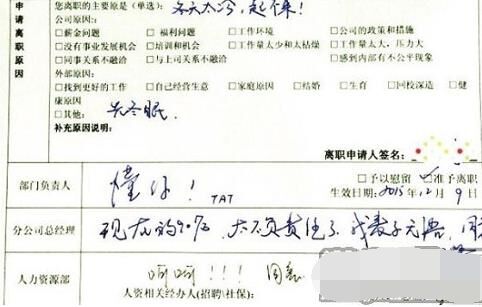 申请离职原因
您离职的主要原是(单选): 冬天太冷,起不来!
公司原因:
□薪金问题 □福利问题 □工作环境 □公司的政策和措施
□没有事业发展机会 □培训和机会 □工作量太少和太枯燥 □工作量太大,压力大
□同事关系不融洽 □与上司关系不融洽 □感到内部有不公平现象
外部原因:
□找到更好的工作 □自己经营生意 □家庭原因 □结婚 □生育 □回校深造 □健
康原因
□其他: 去冬眠
补充原因说明:
离职申请人签名:
□予以慰留 ☑准予离职
部门负责人 懂你! TAT 生效日期: 2015. 12月 9日
分公司总经理 现在的90后,太不负责任了
人力资源部 呵呵!!!
人资相关经办人(招聘\社保):